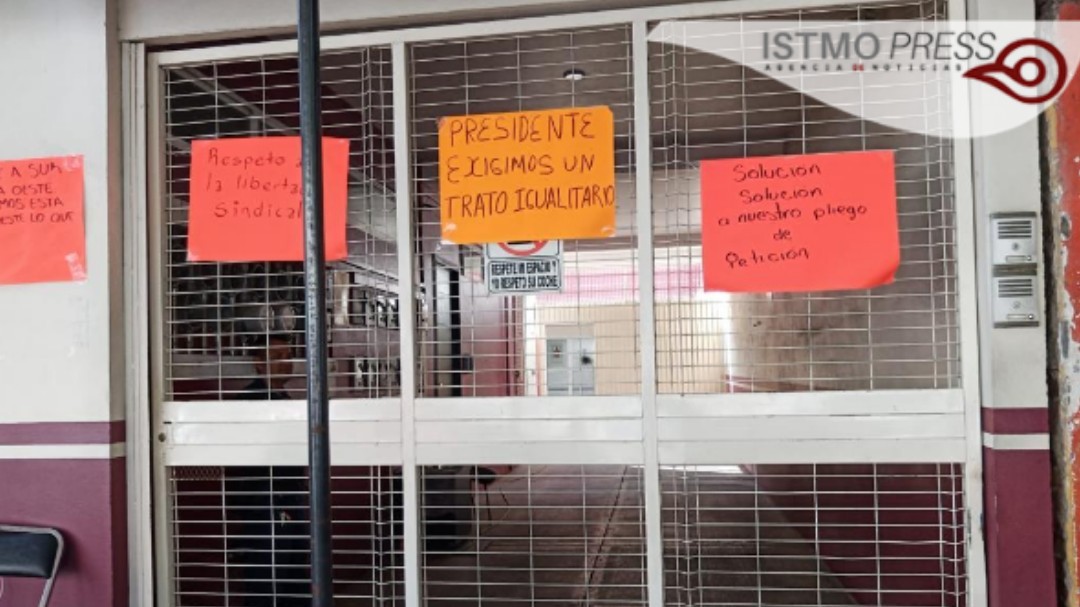 ISTMO PRESS
AGENCIA DE NOTICIAS
A SUR
OESTE
ESTA
ESTE LO QUE
Respeto a
la liberta
Sindical
PRESIDENTE
EXIGIMOS UN
TRATO IGUALITARIO
RESPETE MI ESPACIO Y
YO RESPETO SU COCHE
Solución
Solución
a nuestro pliego
de
Petición